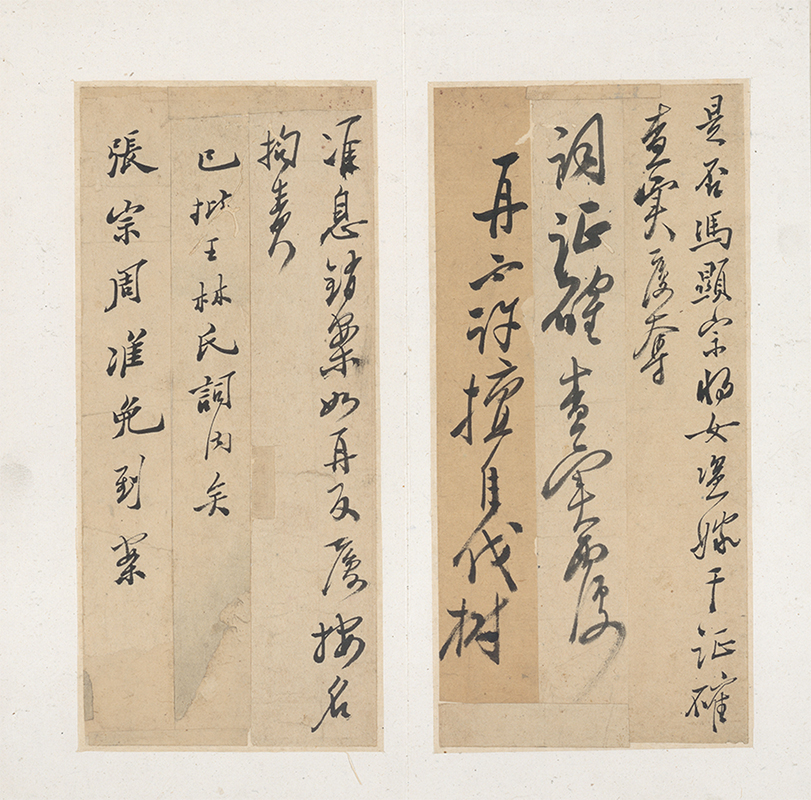 是否馮顯宗將女混嫁干証確
查実覆奪
詞証確查実覆
再不許擅自伐樹
准息銷案如再反覆按名
拘責
已批王林氏詞內矣
張宗周准免到案